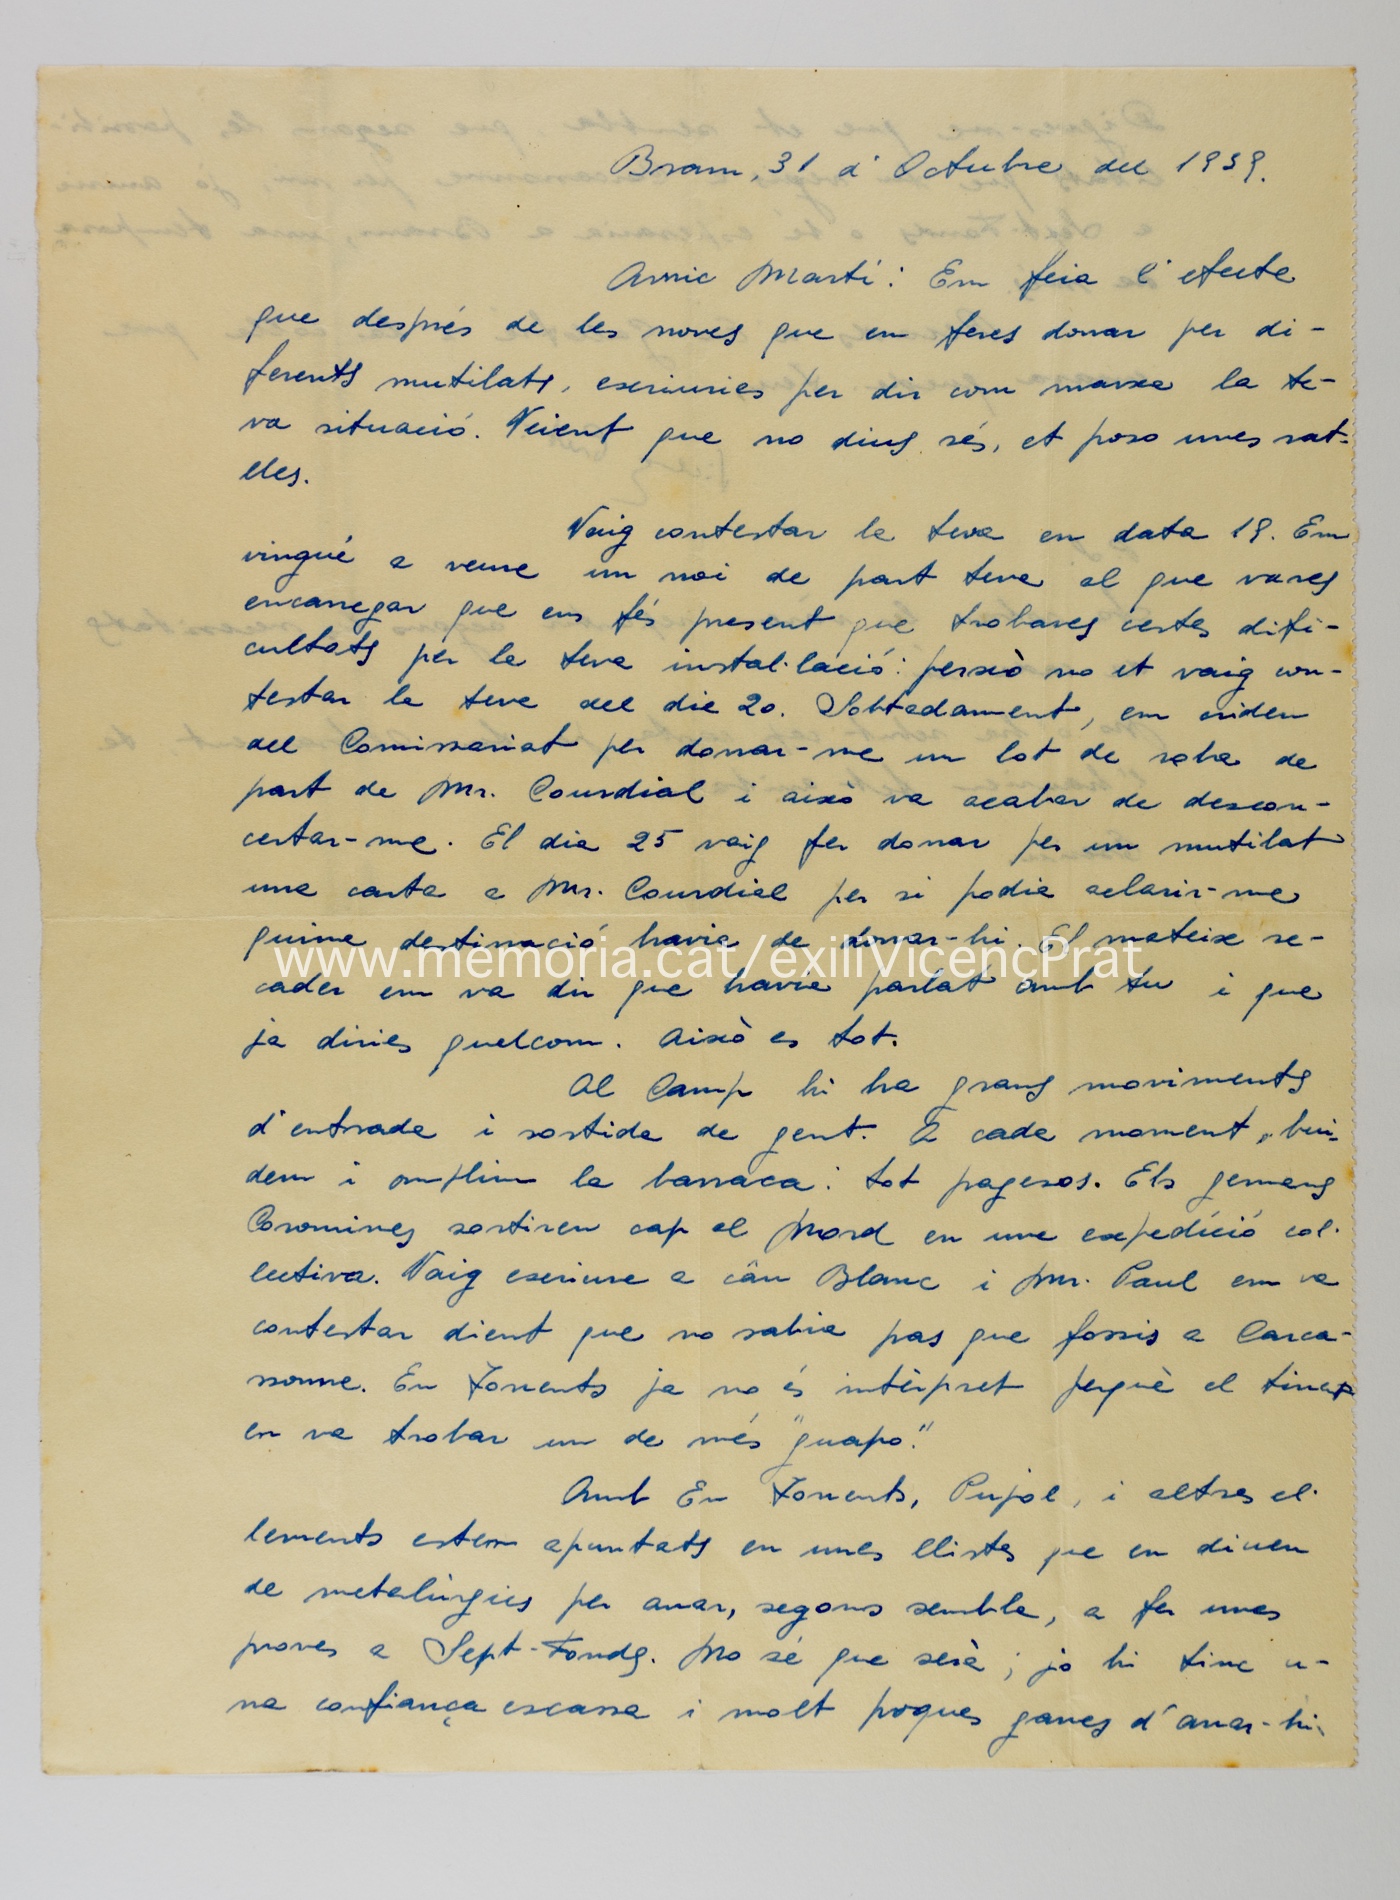 Bram, 31 d'Octubre del 1939.
Amic Martí: Em feia l'efecte
que després de les noves que em feres donar per di-
ferents mutilats, escriuries per dir com marxa la te-
va situació. Veient que no dius rés, et poso unes rat-
lles.
Vaig contestar la teva en data 19. Em
vingué a veure un noi de part teva al que vares
encarregar que ens fés present que trobaves certes difi-
cultats per la teva instal·lació: perxò no et vaig con-
testar la teva del dia 20. Sobtadament, em criden
del Comissariat per donar-me un lot de roba de
part de Mr. Courdial i això va acabar de descon-
certar-me. El dia 25 vaig fer donar per un mutilat
una carta a Mr. Courdial per si podia aclarir-me
quina destinació havia de donar-hi. El mateix re-
cader em va dir que havia parlat amb tu i que
ja diries quelcom. Això es tot.
Al Camp hi ha grans moviments
d'entrada i sortida de gent. A cada moment, bui-
dem i omplim la barraca: tot pagesos. Els germans
Coromines sortiren cap al Nord en una expedició col·
lectiva. Vaig escriure a cân Blanc i Mr. Paul em va
contestar dient que no sabia pas que fossis a Carca-
ssonne. En Torrents ja no és intèrpret perquè el tinent
en va trobar un de més "guapo".
Amb En Torrents, Pujol, i altres el·
lements estem apuntats en unes llistes que en diuen
de metalúrgics per anar, segons sembla, a fer unes
proves a Sept-Fonds. No sé que serà; jo hi tinc u-
na confiança escassa i molt poques ganes d'anar-hi.
www.memoria.cat/exiliVicencPrat